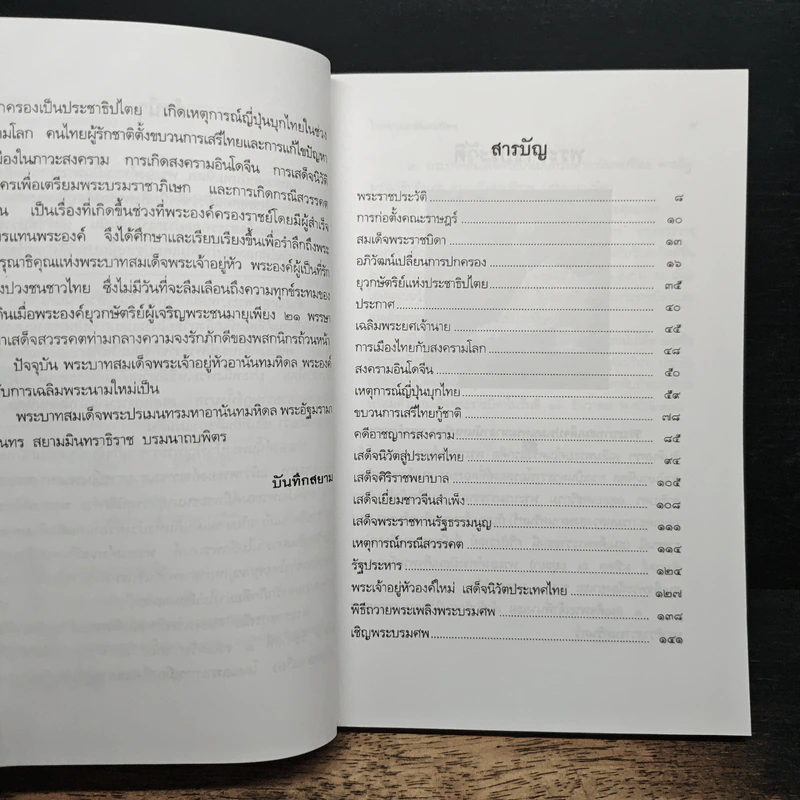 ครองเป็นประชาธิปไตย เกิดเหตุการณ์ญี่ปุ่นบุกไทยในช่วง
มโลก คนไทยผู้รักชาติตั้งขบวนการเสรีไทยและการแก้ไขปัญหา
มืองในภาวะสงคราม การเกิดสงครามอินโดจีน การเสด็จนิวัติ
ครเพื่อเตรียมพระบรมราชาภิเษก และการเกิดกรณีสวรรคต
น เป็นเรื่องที่เกิดขึ้นช่วงที่พระองค์ครองราชย์โดยมีผู้สำเร็จ
ารแทนพระองค์ จึงได้ศึกษาและเรียบเรียงขึ้นเพื่อรำลึกถึงพระ
รุณาธิคุณแห่งพระบาทสมเด็จพระเจ้าอยู่หัว พระองค์ผู้เป็นที่รัก
งปวงชนชาวไทย ซึ่งไม่มีวันที่จะลืมเลือนถึงความทุกข์ระทมของ
ดินเมื่อพระองค์ยุวกษัตริย์ผู้เจริญพระชนมายุเพียง ๒๑ พรรษา
าเสด็จสวรรคตท่ามกลางความจงรักภักดีของพสกนิกรถ้วนหน้า
ปัจจุบัน พระบาทสมเด็จพระเจ้าอยู่หัวอานันทมหิดล พระองค์
ับการเฉลิมพระนามใหม่เป็น
พระบาทสมเด็จพระปรเมนทรมหาอานันทมหิดล พระอัฐมรามา
นทร สยามมินทราธิราช บรมนาถบพิตร
บันทึกสยาม
สารบัญ
พระราชประวัติ ๘
การก่อตั้งคณะราษฎร์ ๑๐
สมเด็จพระราชบิดา ๑๓
อภิวัฒน์เปลี่ยนการปกครอง ๑๖
ยุวกษัตริย์แห่งประชาธิปไตย ๓๕
ประกาศ ๔๐
เฉลิมพระยศเจ้านาย ๔๕
การเมืองไทยกับสงครามโลก ๔๘
สงครามอินโดจีน ๕๐
เหตุการณ์ญี่ปุ่นบุกไทย ๕๙
ขบวนการเสรีไทยกู้ชาติ ๗๘
คดีอาชญากรสงคราม ๘๕
เสด็จนิวัตสู่ประเทศไทย ๙๔
เสด็จศิริราชพยาบาล ๑๐๕
เสด็จเยี่ยมชาวจีนสำเพ็ง ๑๐๘
เสด็จพระราชทานรัฐธรรมนูญ ๑๑๑
เหตุการณ์กรณีสวรรคต ๑๑๔
รัฐประหาร ๑๒๔
พระเจ้าอยู่หัวองค์ใหม่ เสด็จนิวัตประเทศไทย ๑๒๗
พิธีถวายพระเพลิงพระบรมศพ ๑๓๘
เชิญพระบรมศพ ๑๔๑